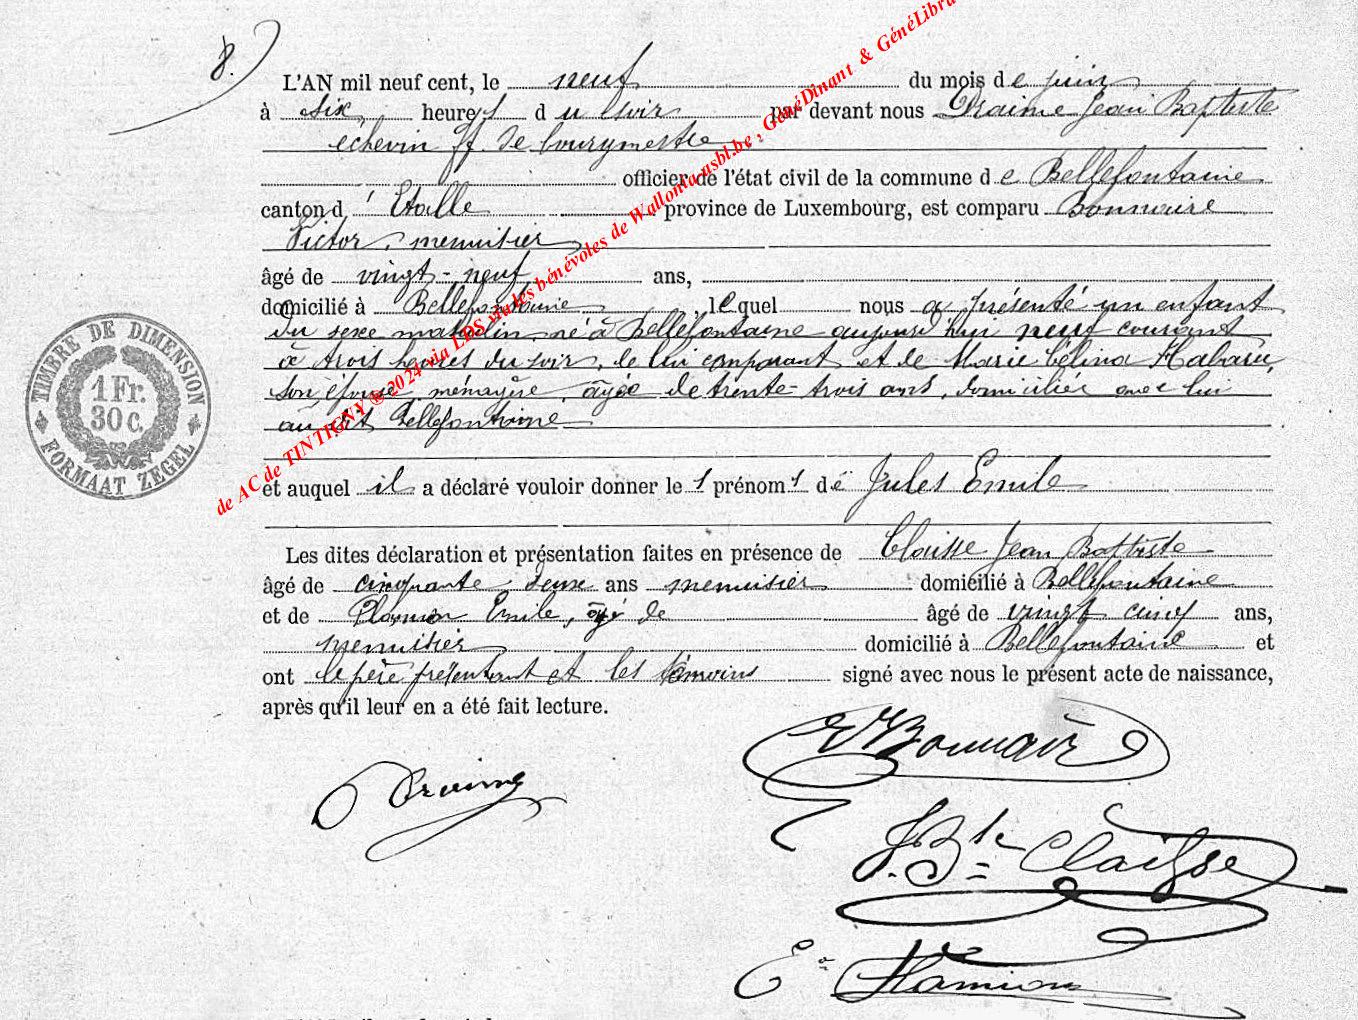 8.
L'AN mil neuf cent, le neuf du mois de juin
à six heures du soir par devant nous Draime Jean Baptiste
échevin ff. de bourgmestre
officier de l'état civil de la commune de Bellefontaine
canton d'Etalle province de Luxembourg, est comparu Bonnaire
Victor, menuisier
âgé de vingt-neuf ans,
domicilié à Bellefontaine, lequel nous a présenté un enfant
du sexe masculin né à Bellefontaine aujourd'hui neuf courant
à trois heures du soir, de lui comparant et de Marie Célina Habaru,
son épouse, ménagère, âgée de trente-trois ans, domiciliée avec lui
au dit Bellefontaine
et auquel il a déclaré vouloir donner les prénoms de Jules Emile
Les dites déclaration et présentation faites en présence de Claisse Jean Baptiste
âgé de cinquante deux ans menuisier domicilié à Bellefontaine
et de Flamion Emile, âgé de âgé de vingt cinq ans,
menuisier domicilié à Bellefontaine et
ont le père présentant et les témoins signé avec nous le présent acte de naissance,
après qu'il leur en a été fait lecture.
V Bonnaire
Draime
J. Bte Claisse
E Flamion
TIMBRE DE DIMENSION
1 Fr.
30 C.
FORMAAT ZEGEL
de AC de TINTIGNY ® 2024 via LDS via les bénévoles de Wallonia asbl.be, GénéDinant & GénéLibra